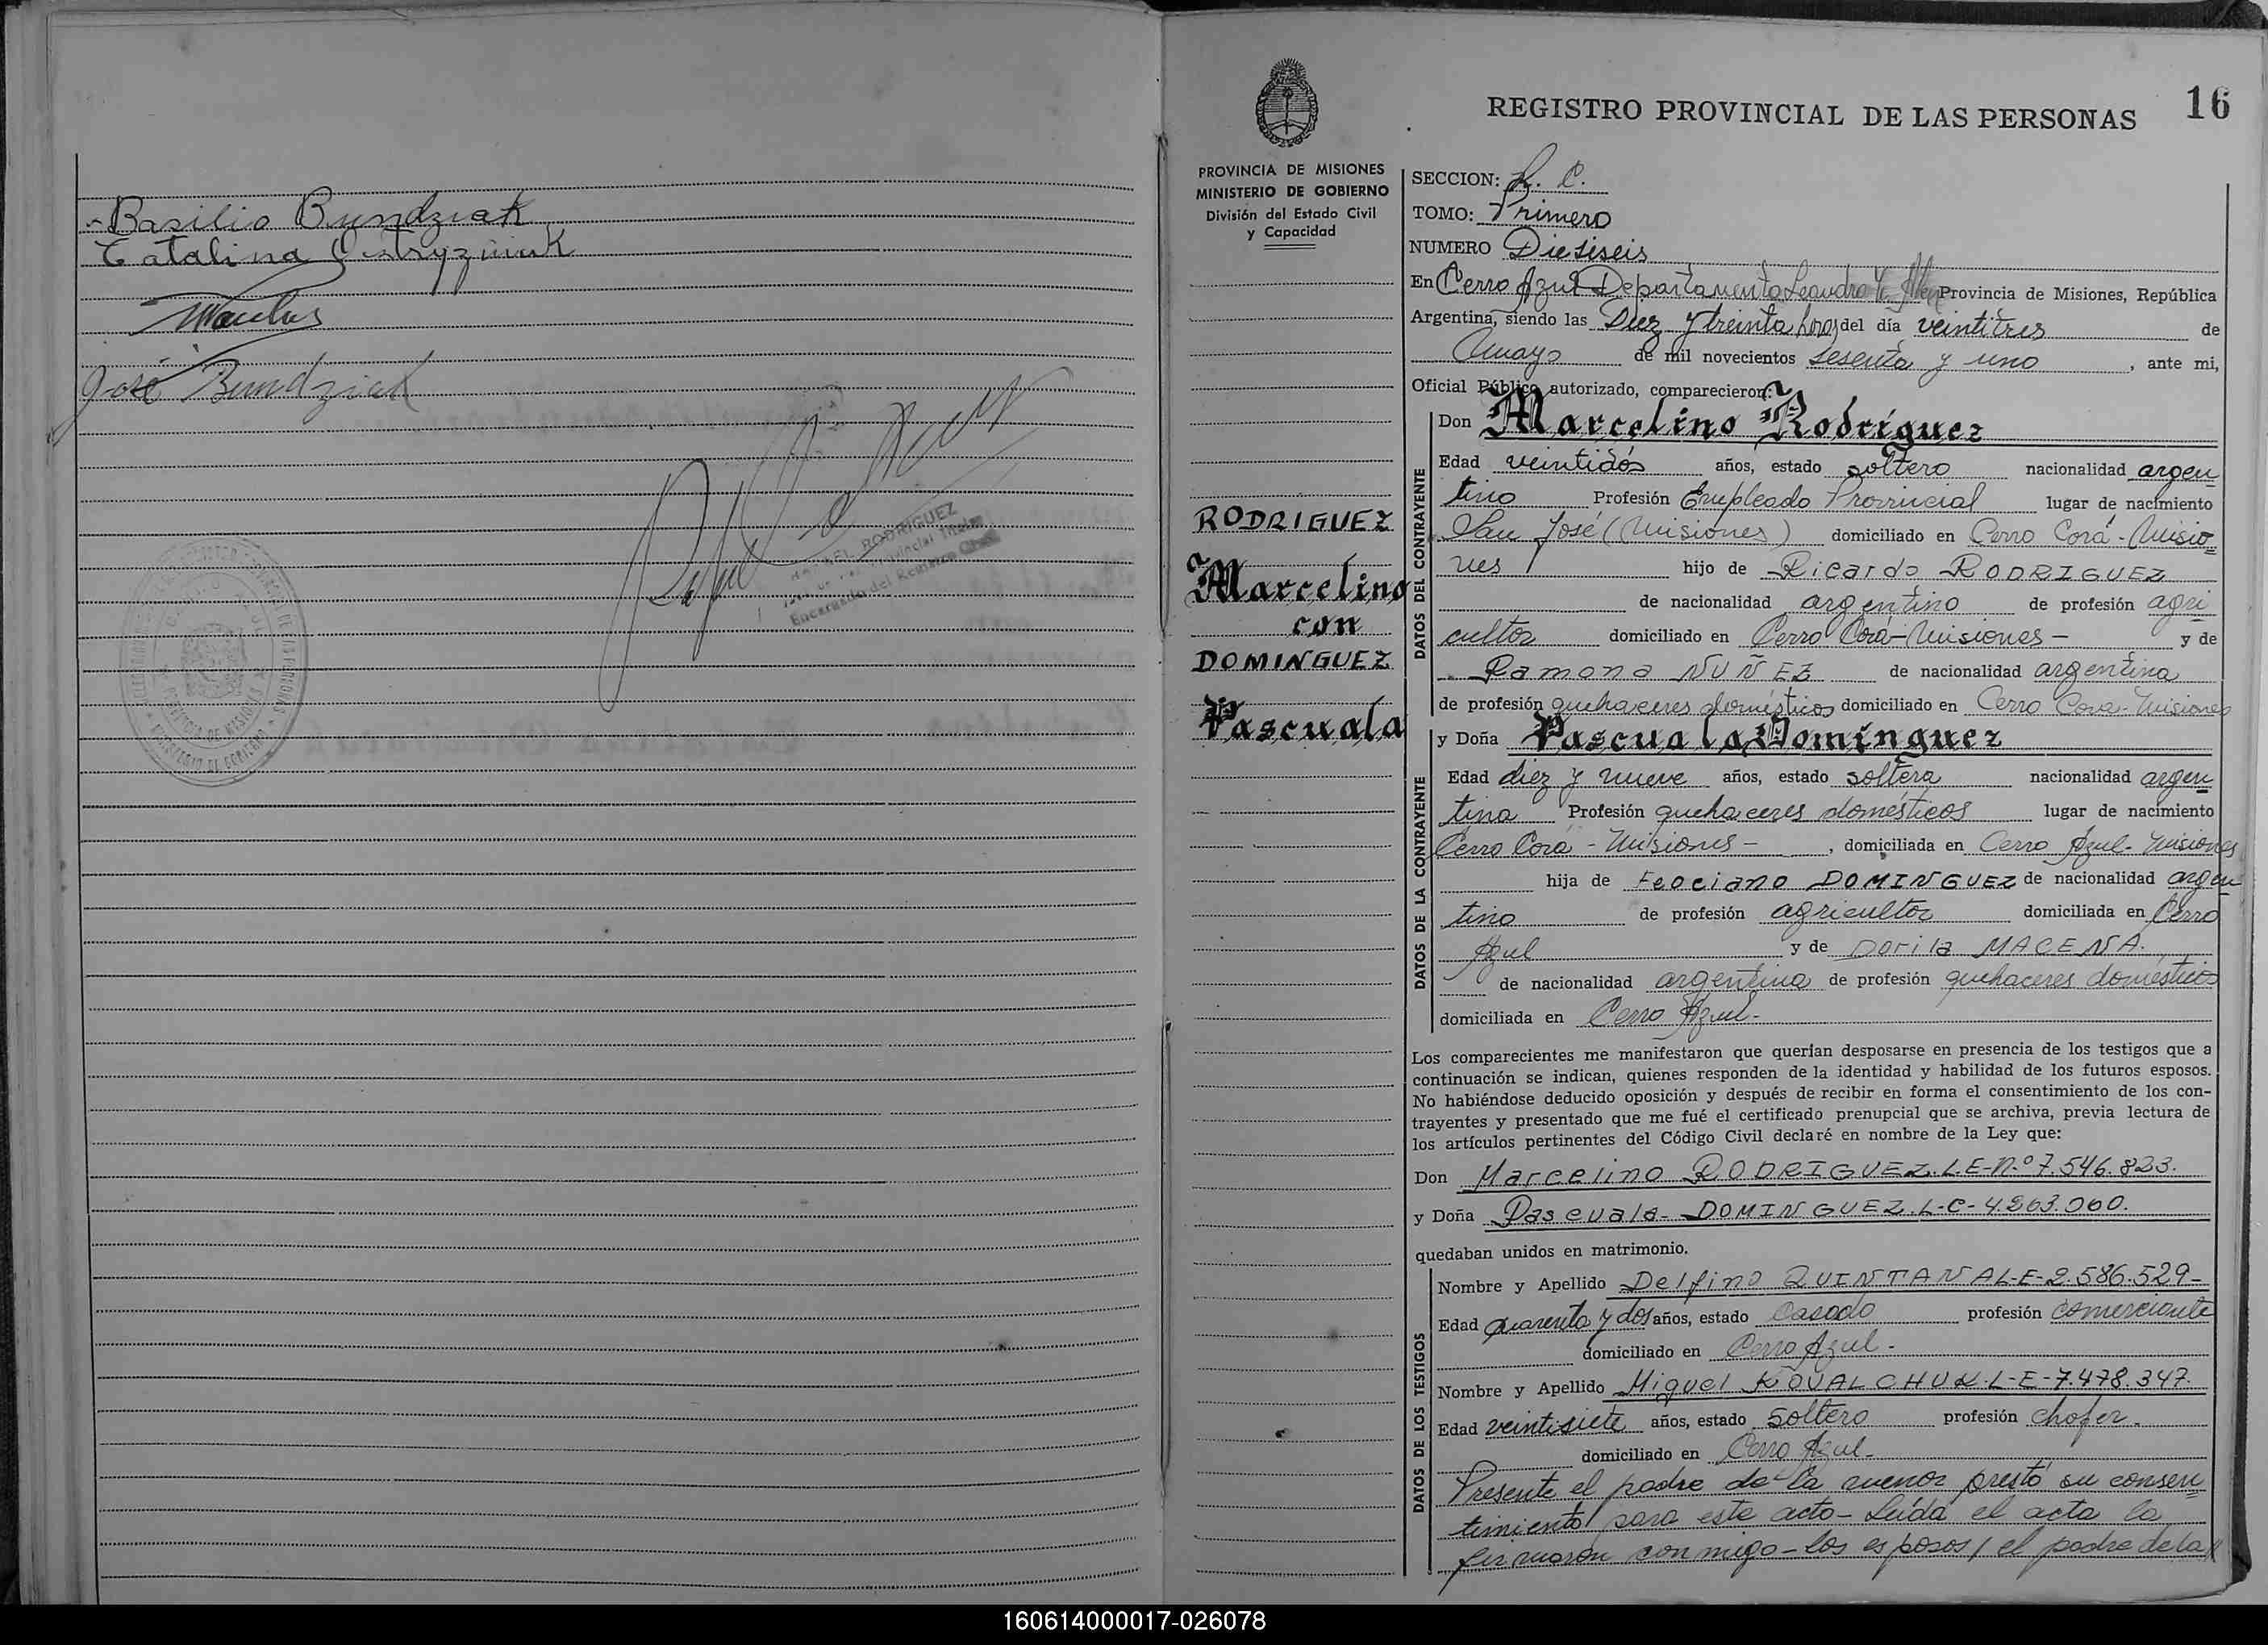 Basilio Bundziak
Catalina Ostryzniuk
José Bundziak
RODRIGUEZ
Encargado del Registro
16
REGISTRO PROVINCIAL DE LAS PERSONAS
PROVINCIA DE MISIONES
MINISTERIO DE GOBIERNO
División del Estado Civil
y Capacidad
RODRIGUEZ
Marcelino
con
DOMINGUEZ
Pascuala
SECCION: R. C.
TOMO: Primero
NUMERO DieSiseis
En Cerro Azul Departamento Leandro N. Alem Provincia de Misiones, República
Argentina, siendo las Diez y treinta horas del día veintitres de
mayo de mil novecientos sesenta y uno, ante mi,
Oficial Público autorizado, comparecieron:
DATOS DEL CONTRAYENTE
Don Marcelino Rodríguez
Edad veintidós años, estado soltero nacionalidad argen
tino Profesión Empleado Provincial lugar de nacimiento
San José (Misiones) domiciliado en Cerro Corá - Misio
nes hijo de Ricardo RODRIGUEZ
de nacionalidad argentino de profesión agri
cultor domiciliado en Cerro Corá-Misiones - y de
Ramona NUÑEZ de nacionalidad argentina
de profesión quehaceres domésticos domiciliado en Cerro Corá-Misiones
DATOS DE LA CONTRAYENTE
y Doña Pascuala Domínguez
Edad diez y nueve años, estado soltera nacionalidad argen
tina Profesión quehaceres domésticos lugar de nacimiento
Cerro Corá - Misiones - , domiciliada en Cerro Azul - Misiones
hija de Feociano DOMINGUEZ de nacionalidad argen
tino de profesión agricultor domiciliada en Cerro
Azul y de Dorila MACENA.
de nacionalidad argentina de profesión quehaceres domésticos
domiciliada en Cerro Azul-
Los comparecientes me manifestaron que querían desposarse en presencia de los testigos que a
continuación se indican, quienes responden de la identidad y habilidad de los futuros esposos.
No habiéndose deducido oposición y después de recibir en forma el consentimiento de los con-
trayentes y presentado que me fué el certificado prenupcial que se archiva, previa lectura de
los artículos pertinentes del Código Civil declaré en nombre de la Ley que:
Don Marcelino RODRIGUEZ. L.E-N.º 7.546.823.
y Doña Pascuala - DOMINGUEZ. L-C-4.263.060.
quedaban unidos en matrimonio.
DATOS DE LOS TESTIGOS
Nombre y Apellido Delfino QUINTANA L-E-2.586.529-
Edad Cuarenta y dos años, estado casado profesión comerciante
domiciliado en Cerro Azul -
Nombre y Apellido Miguel KOVALCHUK. L-E-7.478.347.
Edad veintisiete años, estado soltero profesión chofer.
domiciliado en Cerro Azul-
Presente el padre de la menor prestó su consen
timiento para este acto - Leída el acta la
firmaron conmigo - los esposos, el padre de la
160614000017-026078